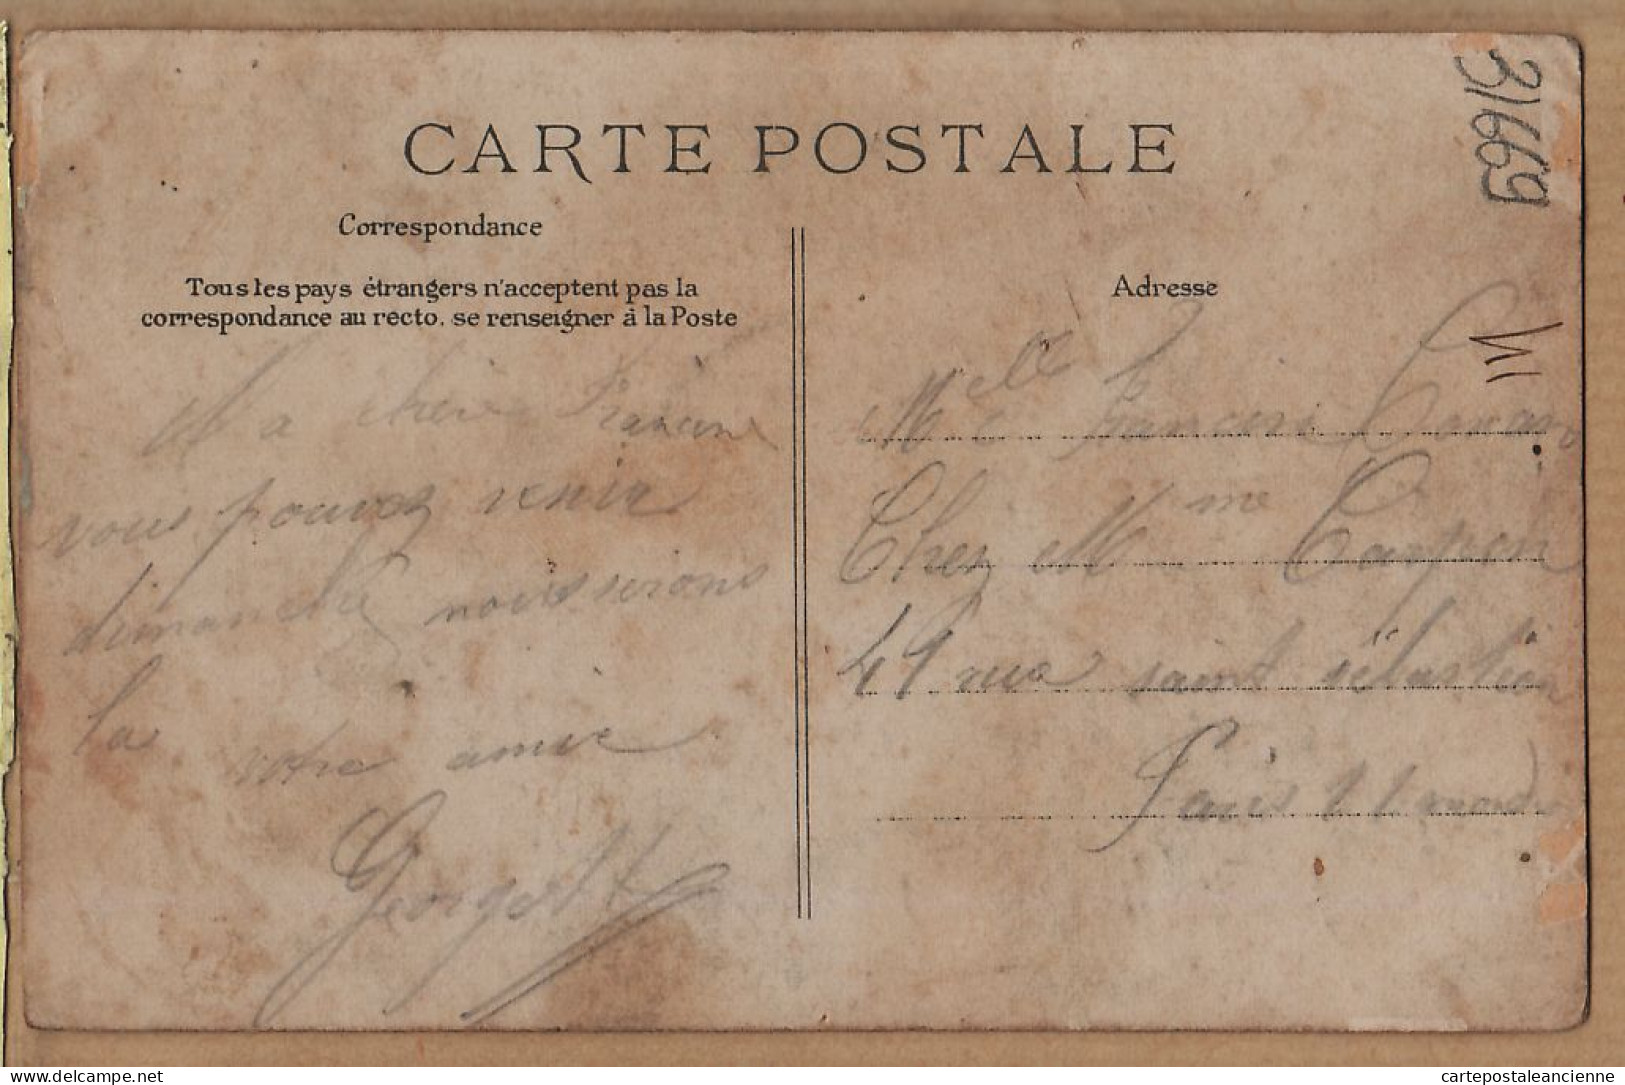 31669
CARTE POSTALE
Correspondance
Tous les pays étrangers n'acceptent pas la
correspondance au recto. se renseigner à la Poste
Ma chère Francine
vous pouvez venir
dimanche nous serons
la votre amie
Georgette
Adresse
Melle Francine
Chez Mme
49 rue saint sébastien
Paris 11
delcampe.net
cartepostaleancienne